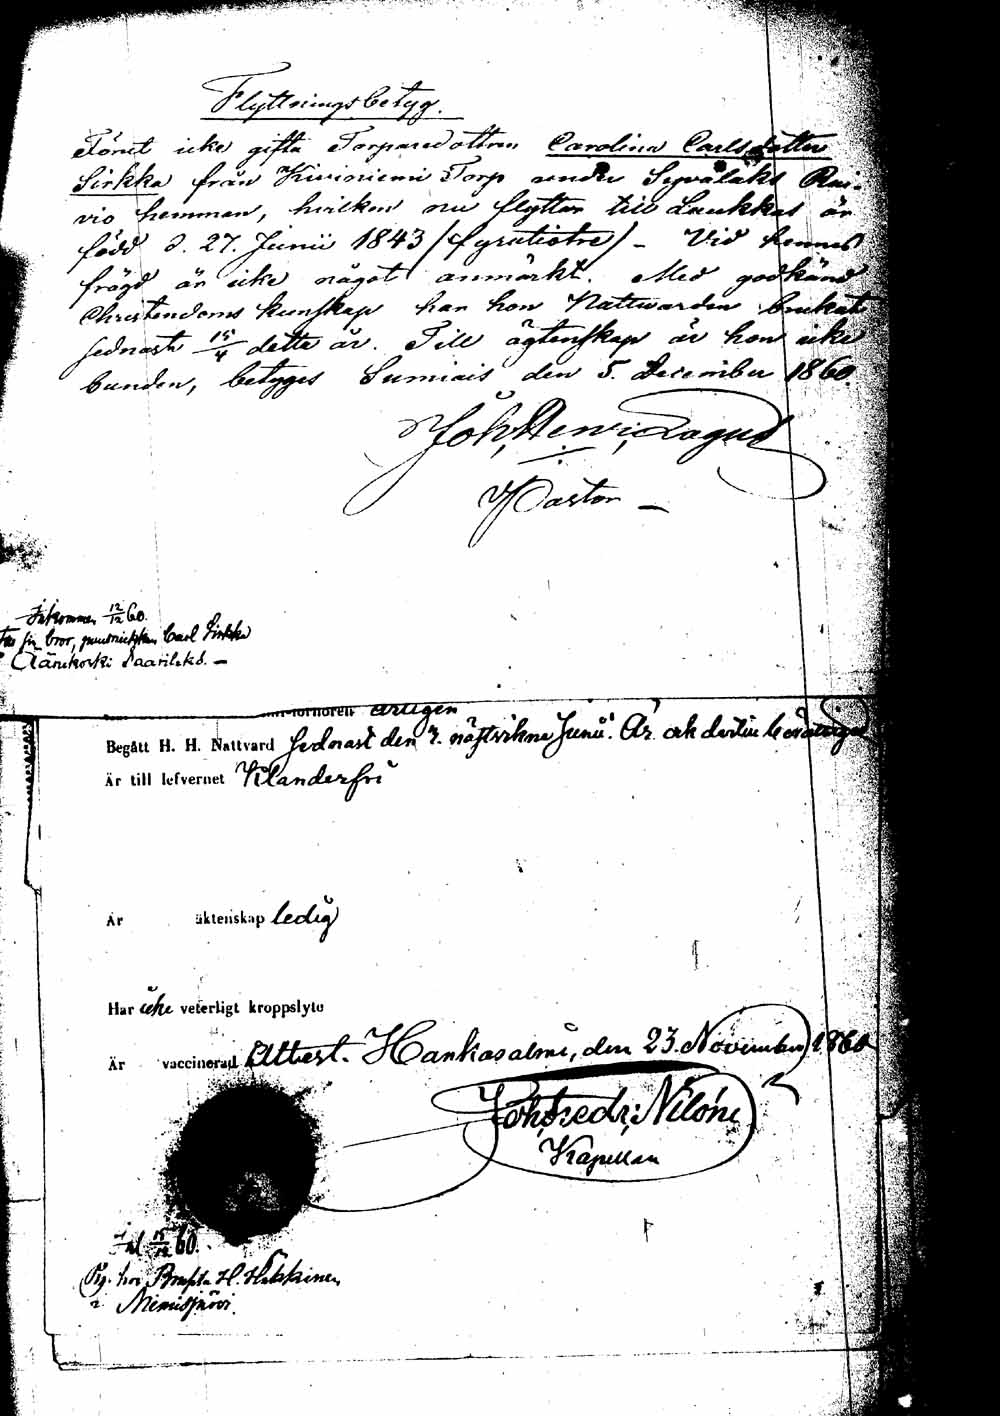 Flyttningsbetyg.
Förut icke gifta Torparedottren Carolina Carlsdotter
Sirkka från Kiviniemi Torp under Syvälaks Rai-
vio hemman, hvilken nu flyttar till Laukkas är
född d. 27. Junii 1843 (fyratiotre) - Vid hennes
frägd är icke något anmärkt. Med godkänd
Christendoms kunskap har hon Nattvarden brukat
sednast 15/4 detta år. Till ägtenskap är hon icke
bunden, betyges Sumiais den 5. December 1860.
Joh, Henr, Lagus
Pastor -
Inkommen 12/12 60.
bror, Carl Sirkka
Äänekoski Saarilaks. -
ärligen
Begått H. H. Nattvard sednast den Junii. år och dertill berättigad
Är till lefvernet Klanderfri
Är äktenskap ledig
Har icke veterligt kroppslyte
Är vaccinerad Attest. Hankasalmi, den 23. November 1860
Joh, Fredr: Nilóni
Kapellan
Ink 15/12 60.
Pig. hos H. Häkkinen
i Niemisjärvi.